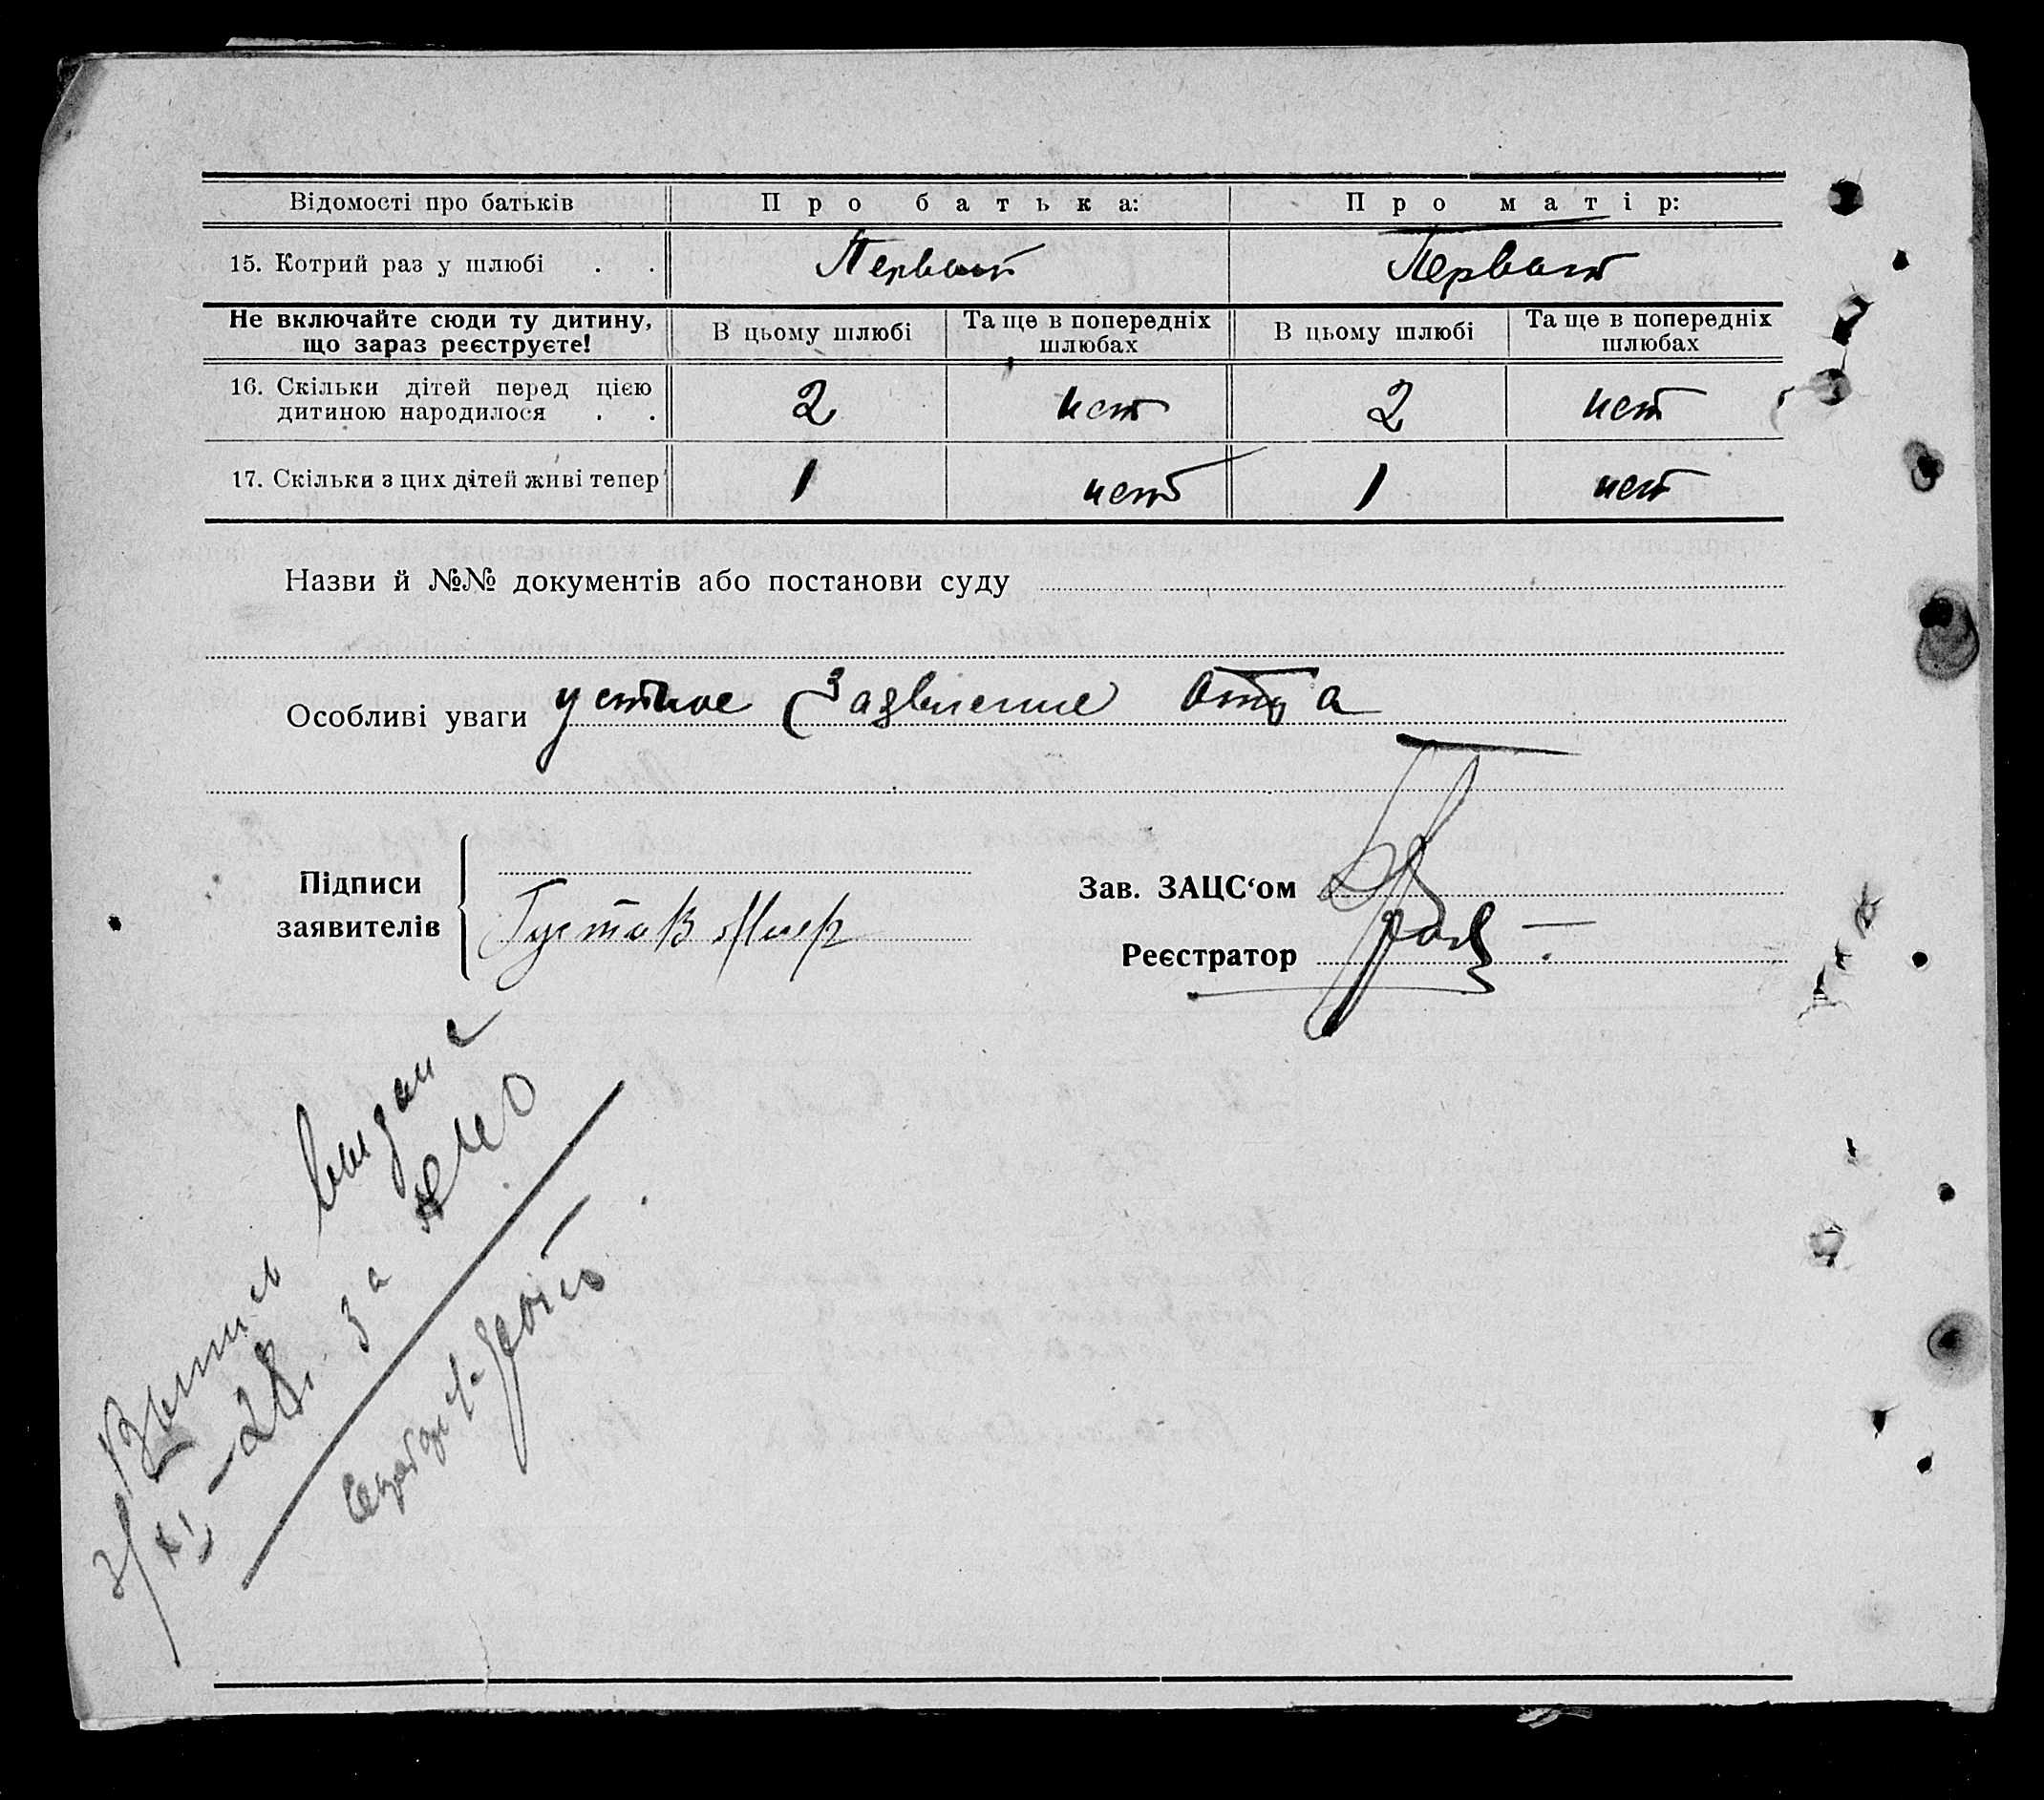 Відомості про батьків Про батька: Про матір:
15. Котрий раз у шлюбі . . Первый Первый
Не включайте сюди ту дитину, що зараз реєструєте! В цьому шлюбі Та ще в попередніх шлюбах В цьому шлюбі Та ще в попередніх шлюбах
16. Скільки дітей перед цією
дитиною народилося . . 2 нет 2 нет
17. Скільки з цих дітей живі тепер 1 нет 1 нет
Назви й №№ документів або постанови суду
Особливі уваги устное заявление отца
Підписи
заявителів
Густав
Зав. ЗАЦС‘ом
Реєстратор
Выпись
XI-28. за